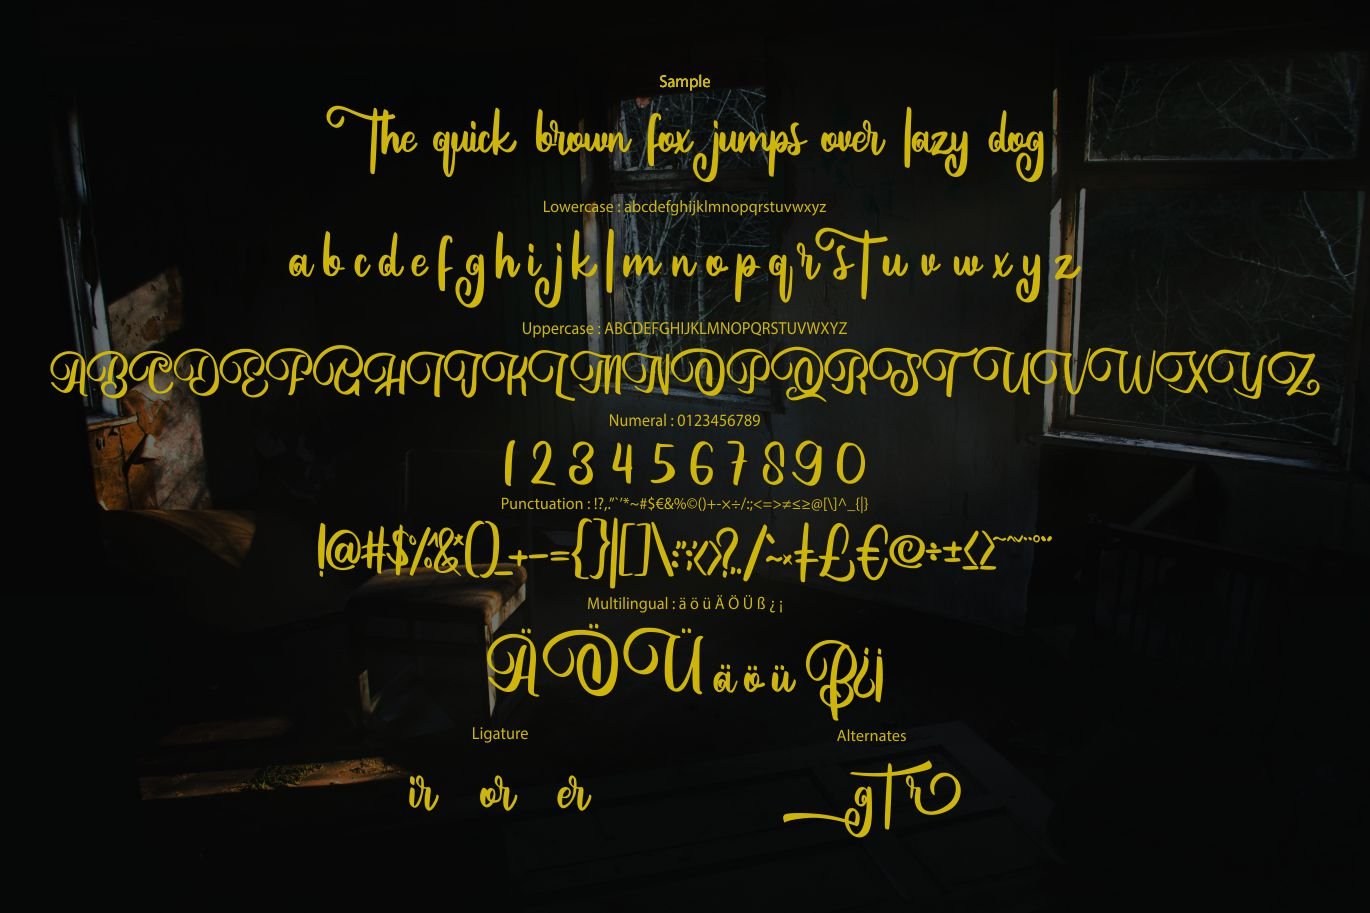 Sample
The quick brown fox jumps over lazy dog
Lowercase : abcdefghijklmnopqrstuvwxyz
a b c d e f g h i j k l m n o p q r s T u v w x y z
Uppercase : ABCDEFGHIJKLMNOPQRSTUVWXYZ
ABCDEFGHIJKLMNOPQRSTUVWXYZ
Numeral : 0123456789
1 2 3 4 5 6 7 8 9 0
Punctuation : !?,."`'*~#$€&%©()+-×÷/:;<=>≠≤≥@[\]^_{|}
!@#$%^&*()_+-={}|[]\:";'<>?,./`~×‡£€©÷±≤≥
Multilingual : ä ö ü Ä Ö Ü ß ¿ ¡
Ä Ö Ü ä ö ü ß ¿ ¡
Ligature
Alternates
ir or er
g T r